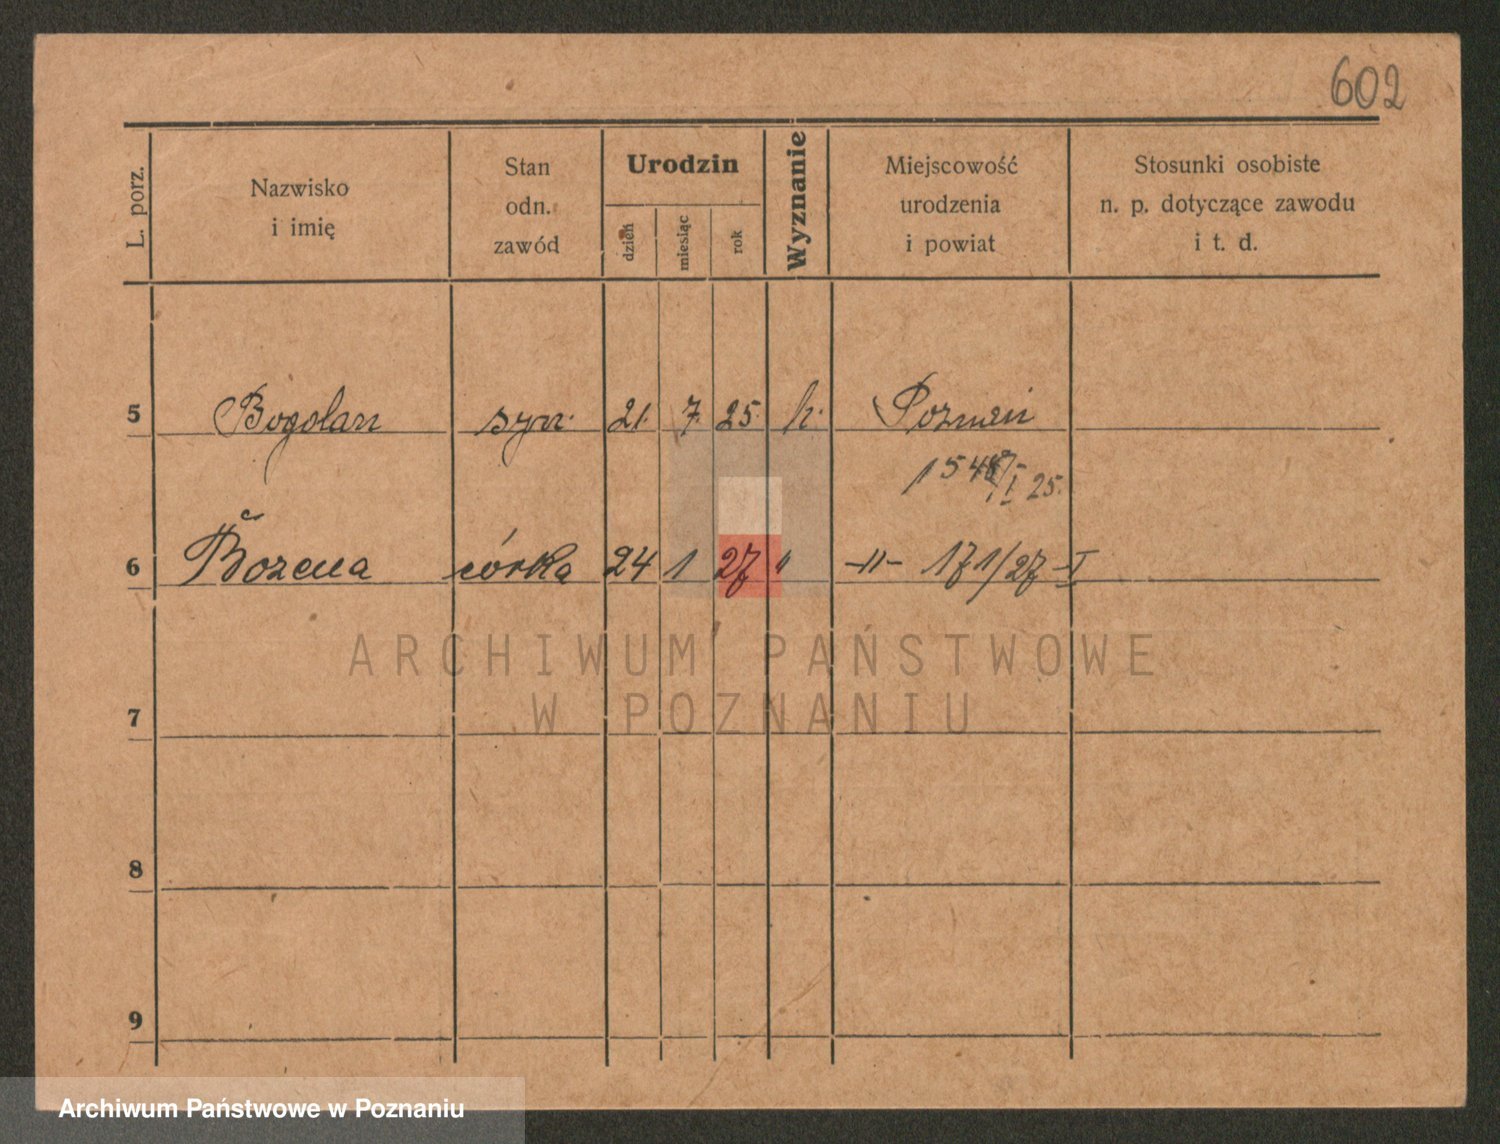 602
L. porz.
Nazwisko
i imię
Stan
odn.
zawód
Urodzin
dzień
miesiąc
rok
Wyznanie
Miejscowość
urodzenia
i powiat
Stosunki osobiste
n. p. dotyczące zawodu
i t. d.
5 Bogolan syn 21. 7. 25. k. Poznań
I 25.
6 Božena córka 24 1 27 " -"- 171/27-I
7
8
9
ARCHIWUM PAŃSTWOWE
W POZNANIU
Archiwum Państwowe w Poznaniu